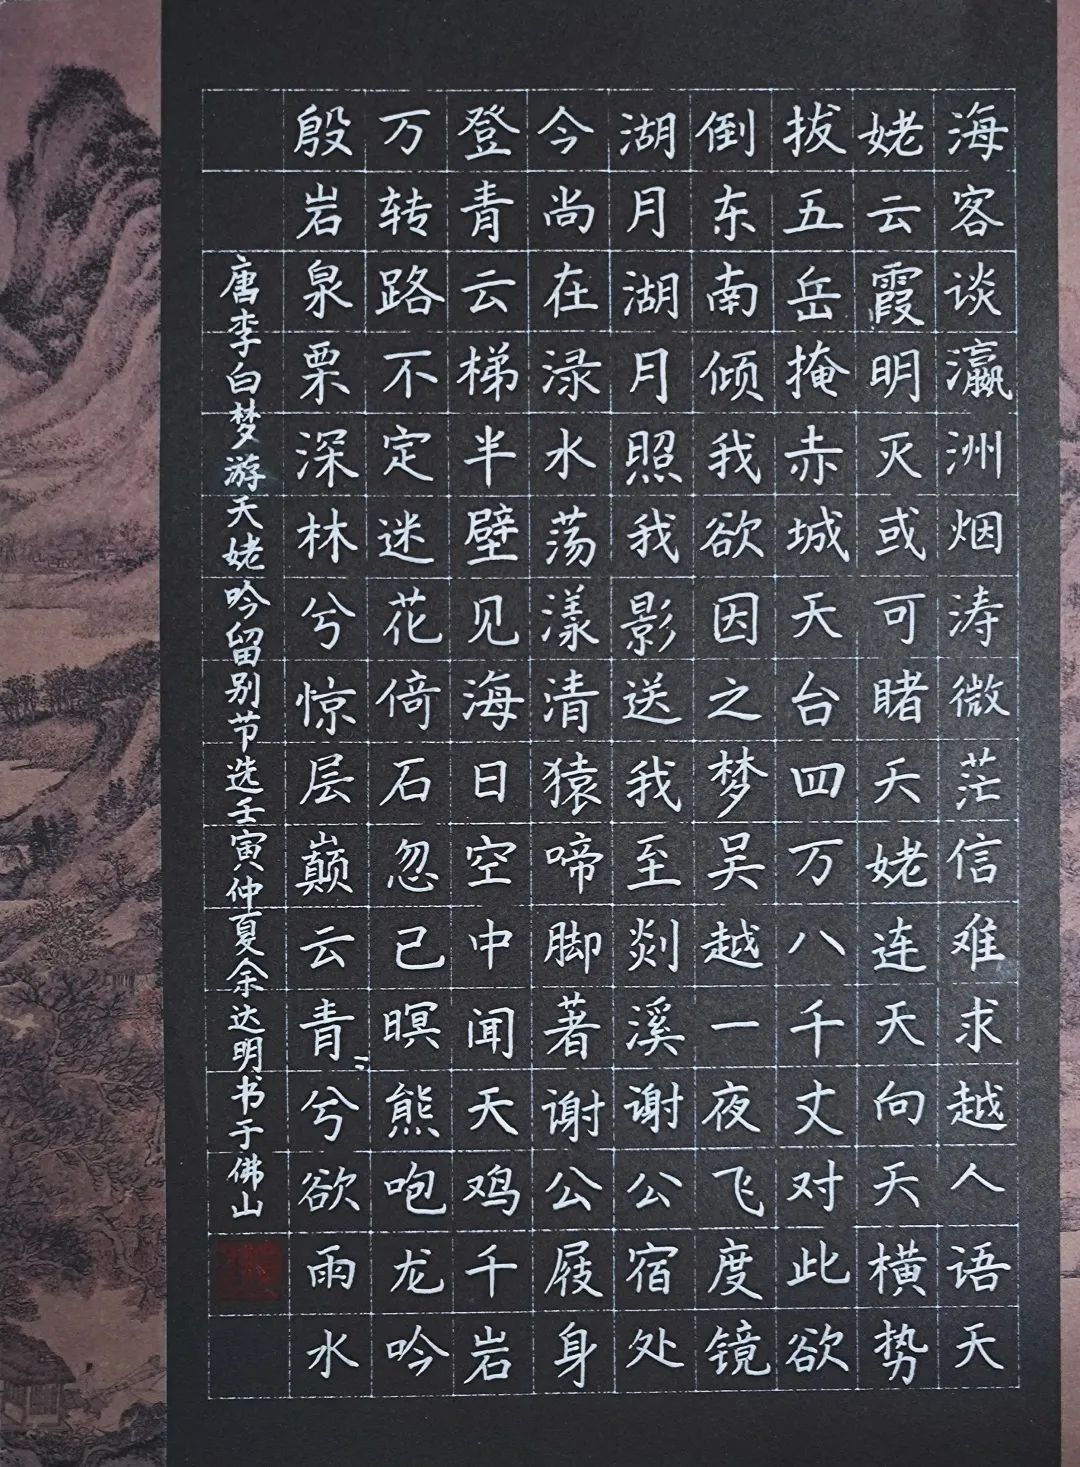 海客谈瀛洲烟涛微茫信难求越人语天
姥云霞明灭或可睹天姥连天向天横势
拔五岳掩赤城天台四万八千丈对此欲
倒东南倾我欲因之梦吴越一夜飞度镜
湖月湖月照我影送我至剡溪谢公宿处
今尚在渌水荡漾清猿啼脚著谢公屐身
登青云梯半壁见海日空中闻天鸡千岩
万转路不定迷花倚石忽已暝熊咆龙吟
殷岩泉栗深林兮惊层巅云青〻兮欲雨水
唐李白梦游天姥吟留别节选壬寅仲夏余达明书于佛山